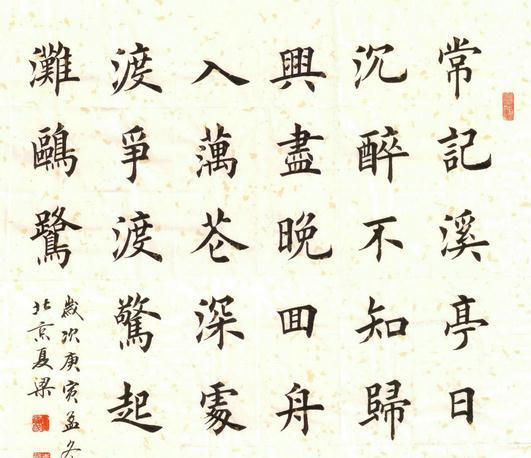 常記溪亭日
沉醉不知歸
興盡晚回舟
入蕅花深處
渡爭渡驚起
灘鷗鷺
歲次庚寅孟冬
北京夏梁